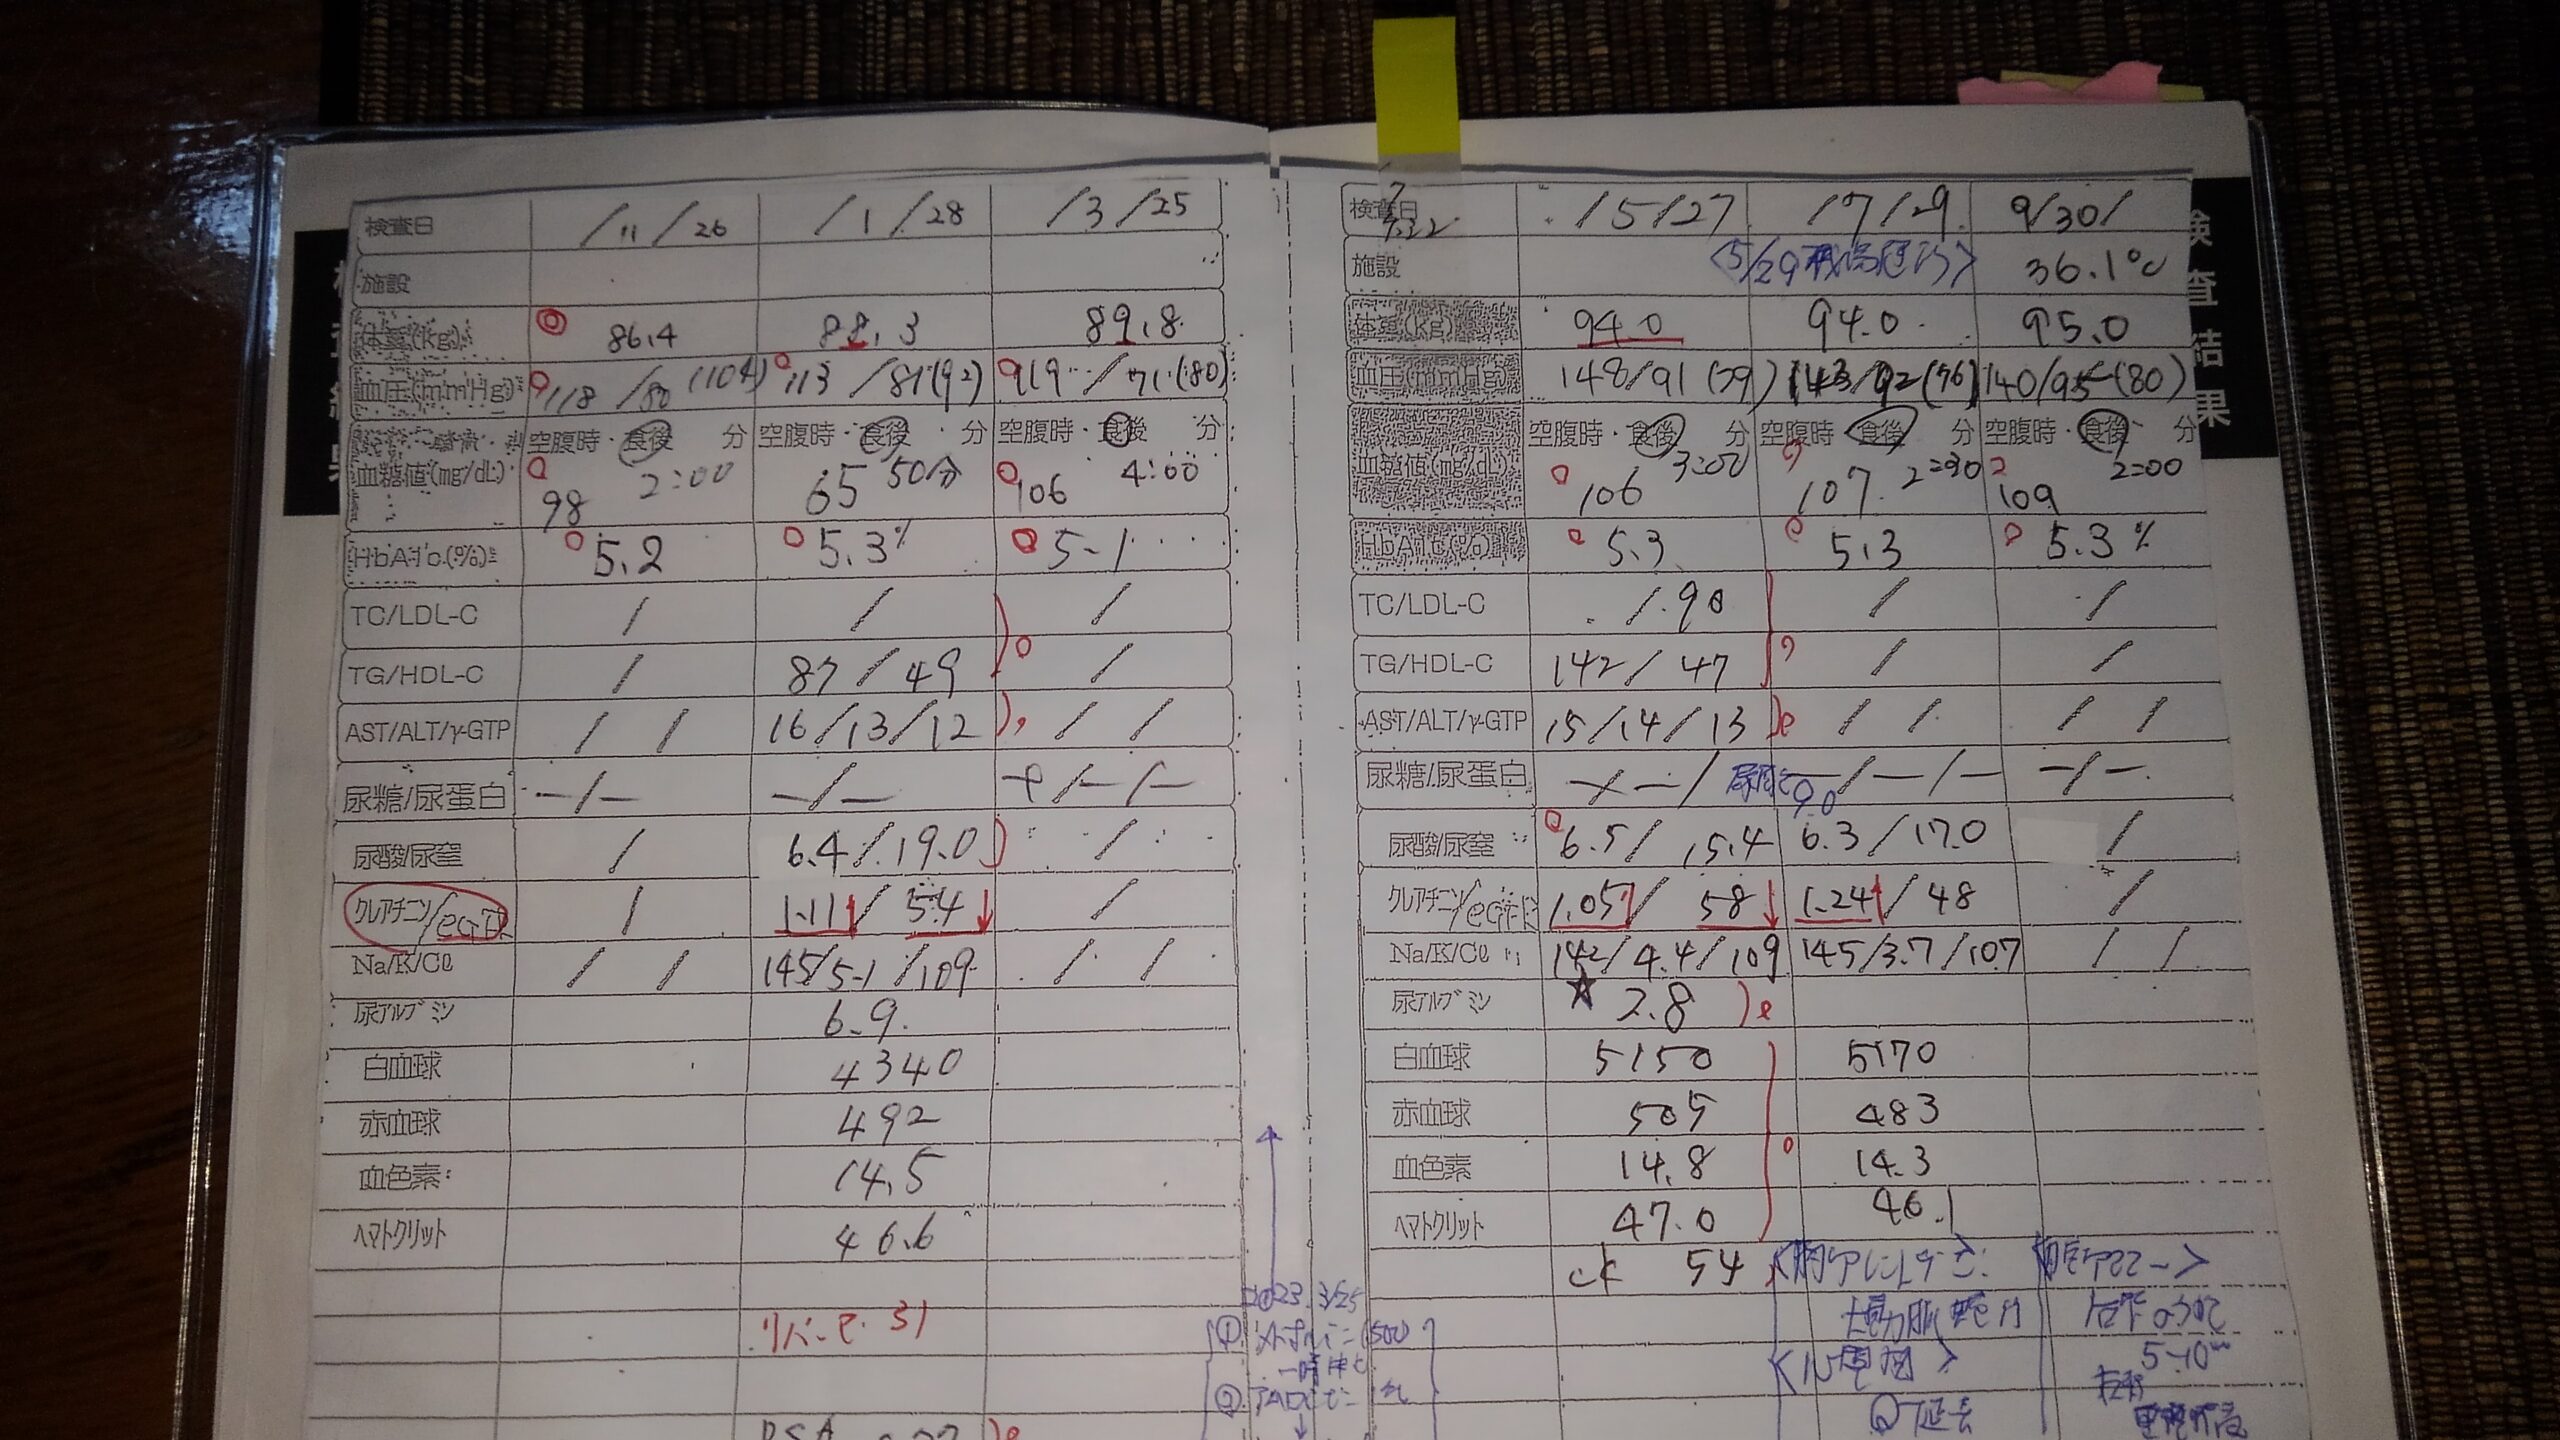 検査日 /11/26 /1/28 /3/25
施設
体重(kg) 86.4 88.3 89.8
血圧(mmHg) 118/80(104) 113/81(92) 119/71(80)
空腹時・食後 分 空腹時・食後 分 空腹時・食後 分
血糖値(mg/dL) 98 2:00 65 50分 106 4:00
HbA1c(%) 5.2 5.3% 5.1
TC/LDL-C / / /
TG/HDL-C / 87/49 /
AST/ALT/γ-GTP / / 16/13/12 / /
尿糖/尿蛋白 -/- -/- +/-/-
尿酸/尿窒 / 6.4/19.0 /
クレアチニン/eGFR / 1.11↑/54↓ /
Na/K/Cl / / 145/5.1/109 / /
尿アルブミン 6.9
白血球 4340
赤血球 492
血色素 14.5
ヘマトクリット 46.6
31
PSA
2023 3/25
①
一時中止
②
検査日 /5/27 /7/29 9/30/
施設 36.1℃
<5/29
体重(kg) 94.0 94.0 95.0
血圧(mmHg) 148/91(79) 143/92(76) 140/95(80)
空腹時・食後 分 空腹時・食後 分 空腹時・食後 分
血糖値(mg/dL) 106 3:00 107 2:30 109 2:00
HbA1c(%) 5.3 5.3 5.3%
TC/LDL-C /90 / /
TG/HDL-C 142/47 / /
AST/ALT/γ-GTP 15/14/13 / / / /
尿糖/尿蛋白 -/-/ -/-/- -/-
尿酸/尿窒 6.5/15.4 6.3/17.0 /
クレアチニン/eGFR 1.05↑/58↓ 1.24↑/48 /
Na/K/Cl 142/4.4/109 145/3.7/107 / /
尿アルブミン ★ 2.8
白血球 5150 5170
赤血球 505 483
血色素 14.8 14.3
ヘマトクリット 47.0 46.1
CK 54
<心電図>
5-10
延長
検査結果